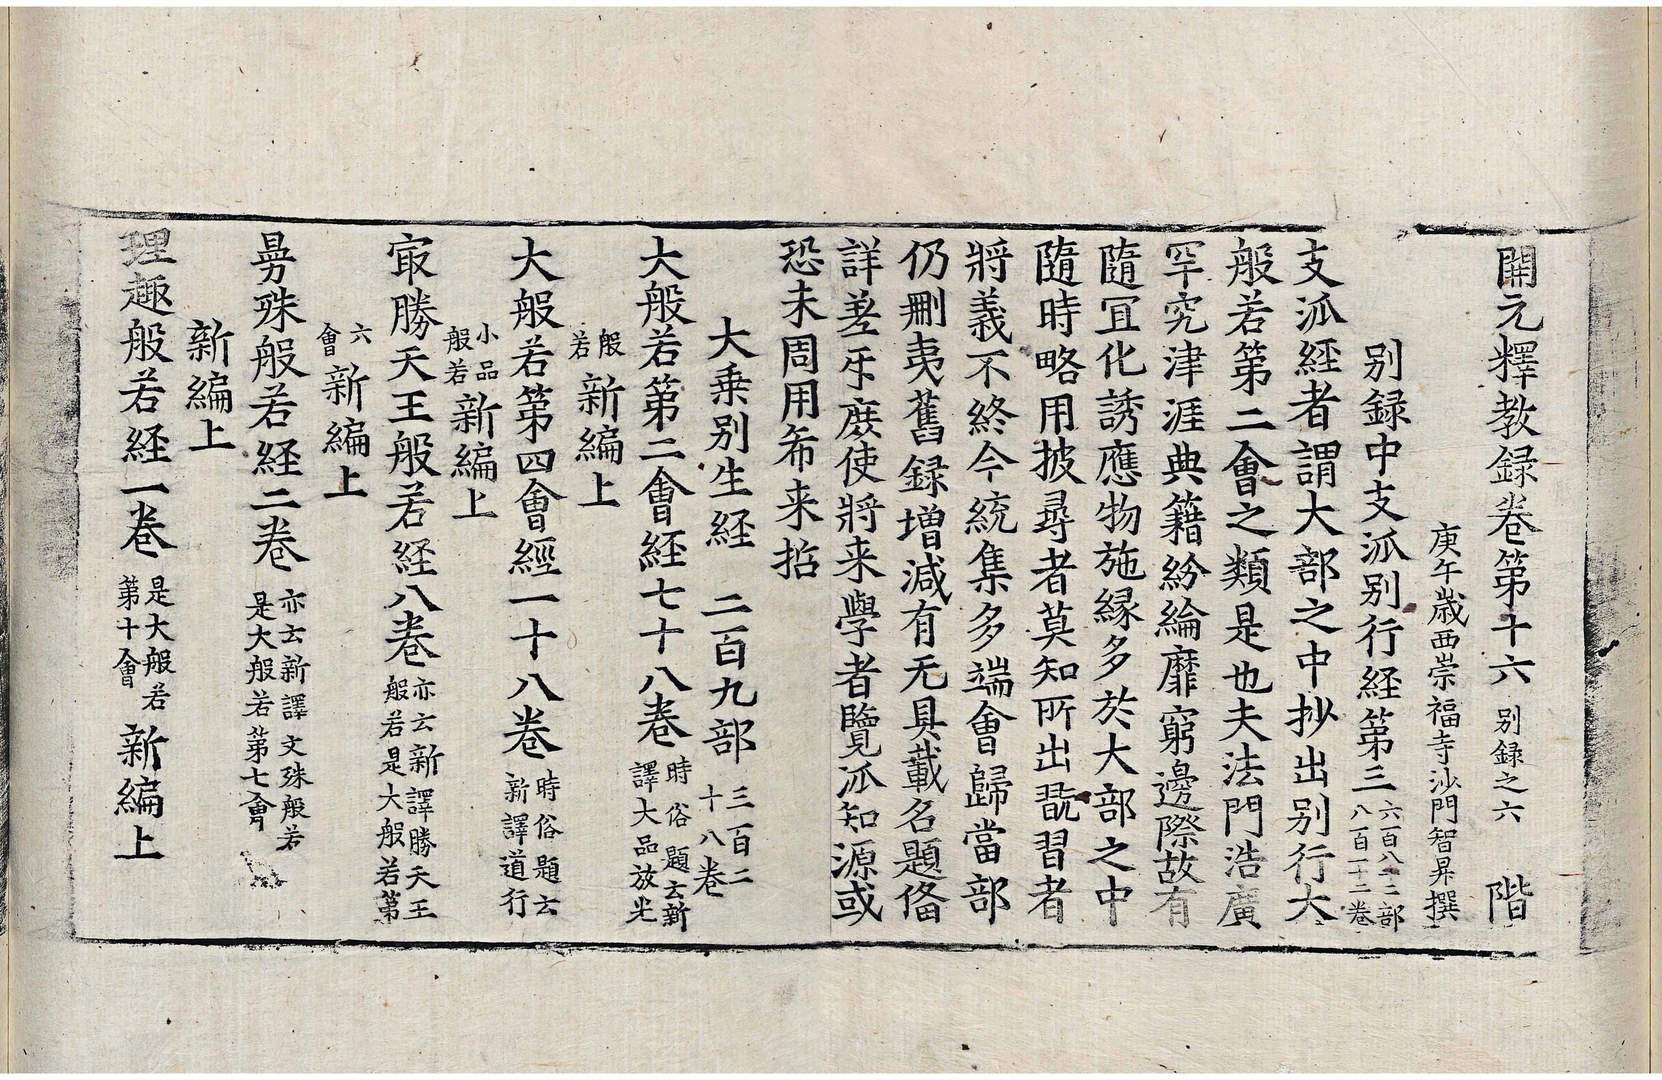 開元釋教録卷第十六 别録之六 階
庚午歲西崇福寺沙門智昇撰
别録中支派别行経第三 六百八十二部 八百一十二卷
支派経者謂大部之中抄出别行大
般若第二會之類是也夫法門浩廣
罕究津涯典籍紛綸靡窮邊際故有
隨冝化誘應物施緣多於大部之中
隨時略用披尋者莫知所出翫習者
將義不終今統集多端會歸當部
仍刪夷舊録增減有无具載名題俻
詳差牙庻使將来學者覽派知源或
恐未周用希来哲
大乗别生経 二百九部 三百二十八卷
大般若第二會経七十八卷 時俗題云新譯大品放光
般若 新編上
大般若第四會經一十八卷 時俗題云新譯道行
小品般若 新編上
冣勝天王般若経八卷 亦云新譯勝天王般若是大般若第
六會 新編上
曼殊般若経二卷 亦云新譯文殊般若是大般若第七會
新編上
理趣般若経一卷 是大般若第十會 新編上